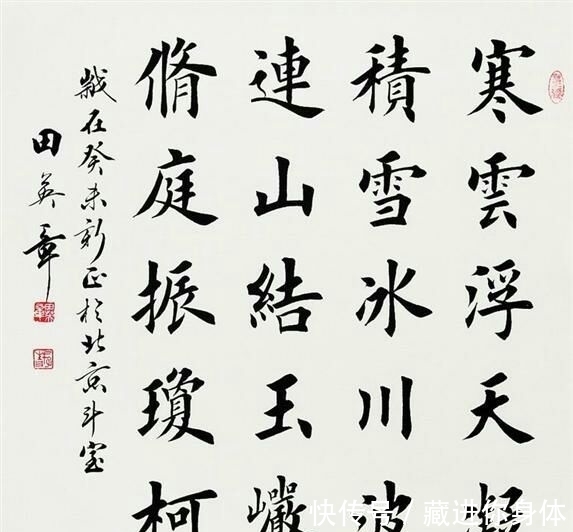 寒雲浮天凝
積雪冰川波
連山結玉巖
脩庭振瓊柯
歲在癸未新正於北京斗室
田英章
快传号/ 藏进你身体